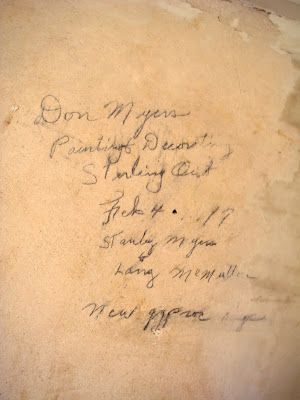 Don Myers
Painting & Decorating
Sterling Ont
Feb 4 . . 19
Stanley Myers
&
Lang McMullen
New gyproc